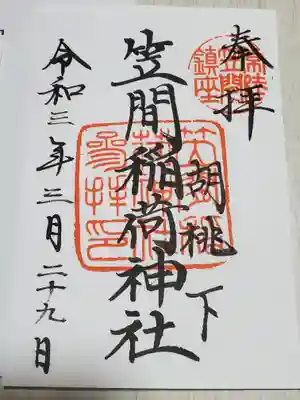 奉拝
常陸
笠間
鎮座
胡桃下
笠間稲荷神社
令和三年三月二十九日